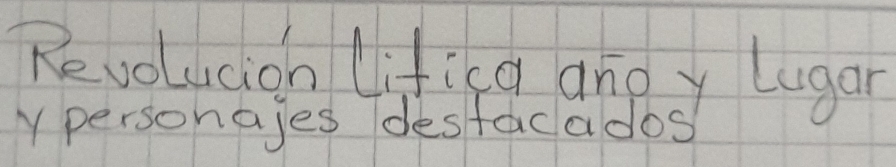 Revolución Lítica año y lugar
y personajes destacados